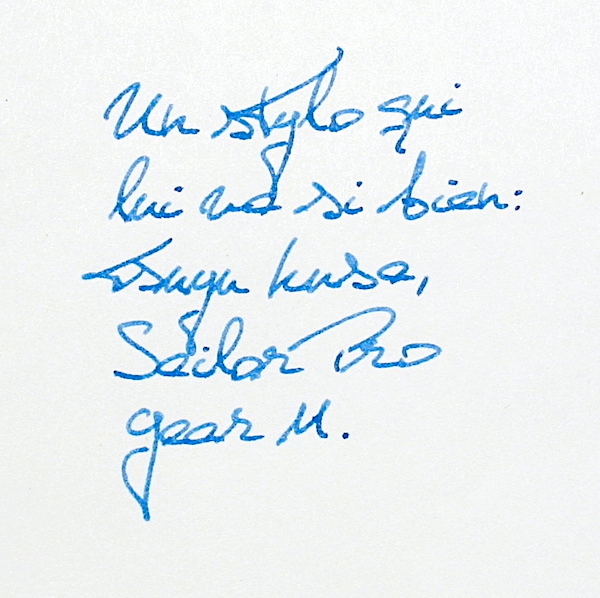 Un stylo qui
lui va si bien:
tsuyu kusa,
Sailor Pro
gear M.